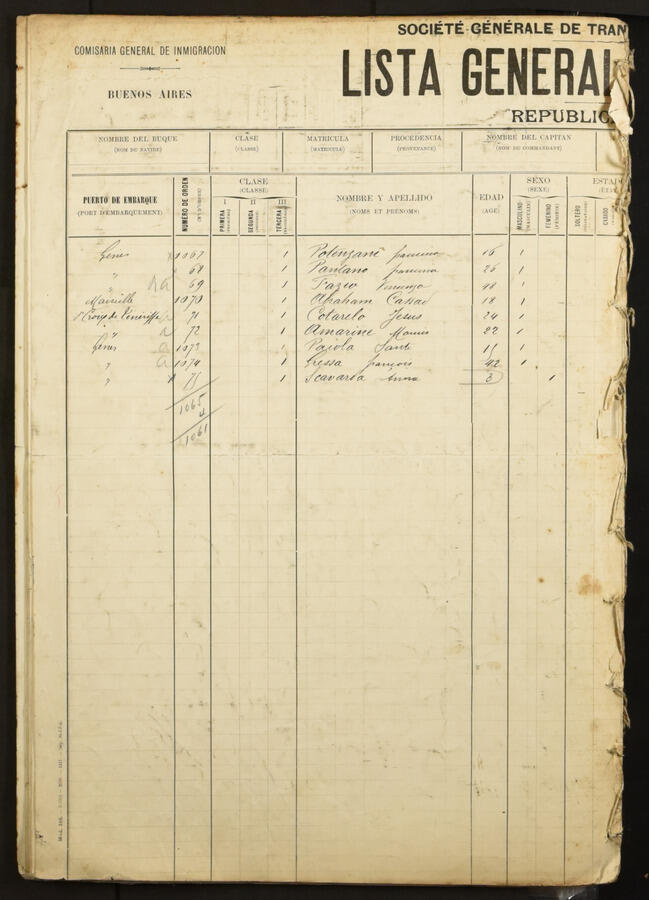 SOCIÉTÉ GÉNÉRALE DE TRAN
COMISARIA GENERAL DE INMIGRACION
BUENOS AIRES
LISTA GENERAL
REPUBLIC
NOMBRE DEL BUQUE CLASE MATRICULA PROCEDENCIA NOMBRE DEL CAPITAN
(NOM DU NAVIRE) (CLASSE) (MATRICULE) (PROVENANCE) (NOM DU COMMANDANT)
PUERTO DE EMBARQUE
(PORT D'EMBARQUEMENT)
NUMERO DE ORDEN
CLASE
(CLASSE)
I II III
PRIMERA
SEGUNDA
TERCERA
NOMBRE Y APELLIDO
(NOMS ET PRÉNOMS)
EDAD
(AGE)
SEXO
(SEXE)
MASCULINO
FEMENINO
ESTAD
SOLTERO
CASADO
Gênes 1067 1 Potenzani 16 1
" 68 1 Pantano 26 1
" 69 1 Fazio 1
Marseille 1070 1 Abraham 18 1
Ste Croix de Ténériffe 71 1 Cotarelo Jesus 24 1
" 72 1 Amarine 22 1
Gênes 1073 1 Paiola Santi 1
" 1074 1 Gressa François 42 1
" 75 1 Scavarda Anna 3 1
1065
4
1061